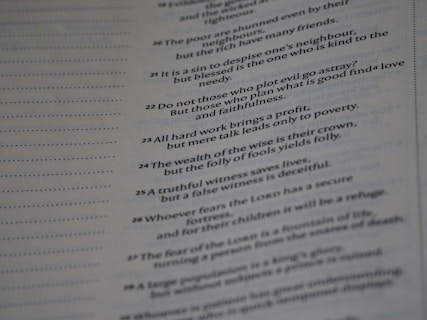 and the wicked at
righteous.
20 The poor are shunned even by their
neighbours,
but the rich have many friends.
21 It is a sin to despise one's neighbour,
but blessed is the one who is kind to the
needy.
22 Do not those who plot evil go astray?
But those who plan what is good find a love
and faithfulness.
23 All hard work brings a profit,
but mere talk leads only to poverty.
24 The wealth of the wise is their crown,
but the folly of fools yields folly.
25 A truthful witness saves lives,
but a false witness is deceitful.
26 Whoever fears the LORD has a secure
fortress,
and for their children it will be a refuge.
27 The fear of the LORD is a fountain of life,
turning a person from the snares of death.
28 A large population is a king's glory,
but without subjects a prince is ruined.
29 Whoever is patient has great understanding,